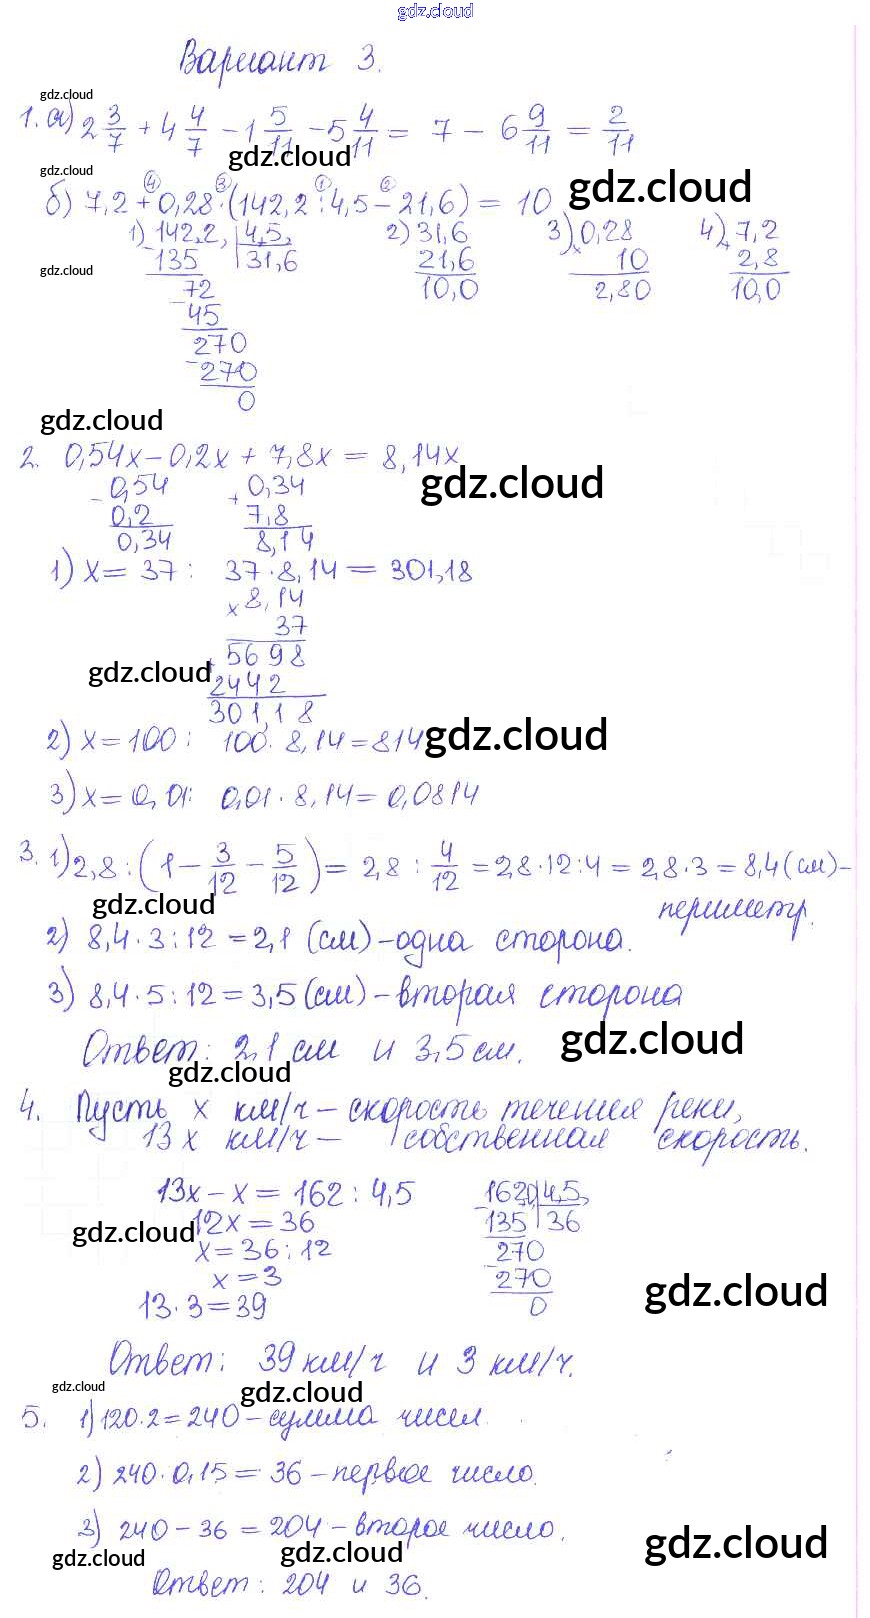 gdz.cloud
Вариант 3.
gdz.cloud
1. а) 2 3/7 + 4 4/7 - 1 5/11 - 5 4/11 = 7 - 6 9/11 = 2/11
gdz.cloud
gdz.cloud gdz.cloud
④ ③ ① ②
б) 7,2 + 0,28 · (142,2 : 4,5 - 21,6) = 10
1) 142,2, | 4,5, 2) 31,6 3) 0,28 4) 7,2
- 135 | 31,6 - 21,6 × 10 + 2,8
gdz.cloud
72 10,0 2,80 10,0
- 45
270
- 270
0
gdz.cloud
2. 0,54x - 0,2x + 7,8x = 8,14x
gdz.cloud
- 0,54 + 0,34
0,2 7,8
0,34 8,14
1) x = 37 : 37 · 8,14 = 301,18
× 8,14
37
+ 5698
gdz.cloud
2442
301,18
2) x = 100 : 100 · 8,14 = 814
gdz.cloud
3) x = 0,01: 0,01 · 8,14 = 0,0814
3. 1) 2,8 : (1 - 3/12 - 5/12) = 2,8 : 4/12 = 2,8 · 12 : 4 = 2,8 · 3 = 8,4 (см) -
gdz.cloud
периметр.
2) 8,4 · 3 : 12 = 2,1 (см) - одна сторона.
3) 8,4 · 5 : 12 = 3,5 (см) - вторая сторона
Ответ: 2,1 см и 3,5 см.
gdz.cloud
gdz.cloud
4. Пусть x км/ч - скорость течения реки,
13x км/ч - собственная скорость.
13x - x = 162 : 4,5 - 162,0, | 4,5,
12x = 36 135 | 36
gdz.cloud
x = 36 : 12 270
x = 3 - 270
gdz.cloud
13 · 3 = 39 0
Ответ: 39 км/ч и 3 км/ч.
gdz.cloud
gdz.cloud
5. 1) 120 · 2 = 240 - сумма чисел.
2) 240 · 0,15 = 36 - первое число.
3) 240 - 36 = 204 - второе число.
gdz.cloud
gdz.cloud
gdz.cloud
Ответ: 204 и 36.